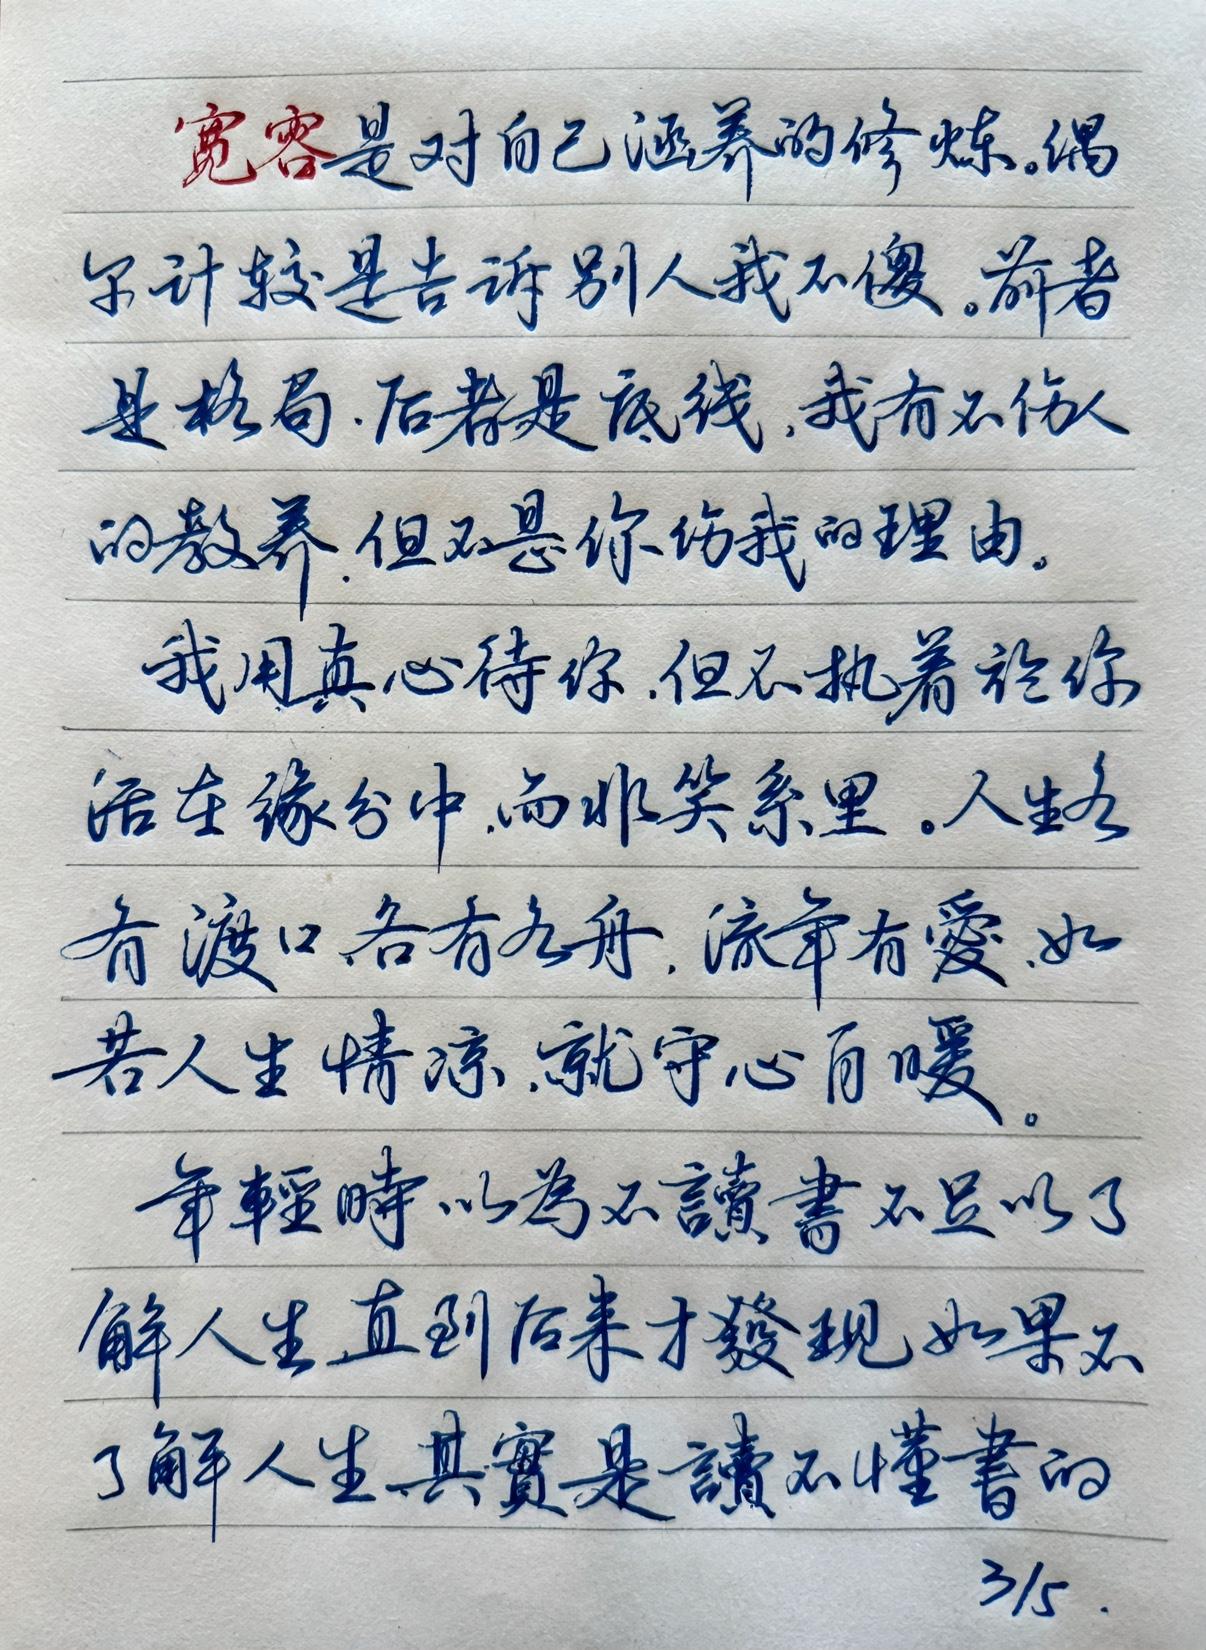 宽容是对自己涵养的修炼。偶
尔计较是告诉别人我不傻。前者
是格局.后者是底线,我有不伤人
的教养.但不是你伤我的理由。
我用真心待你.但不执着於你
活在缘分中.而非关系里。人生各
有渡口.各有各舟.流年有愛.如
若人生情凉.就守心自暖。
年輕時.以為不讀書不足以了
解人生.直到后来才發现.如果不
了解人生.其實是讀不懂書的
3/5.